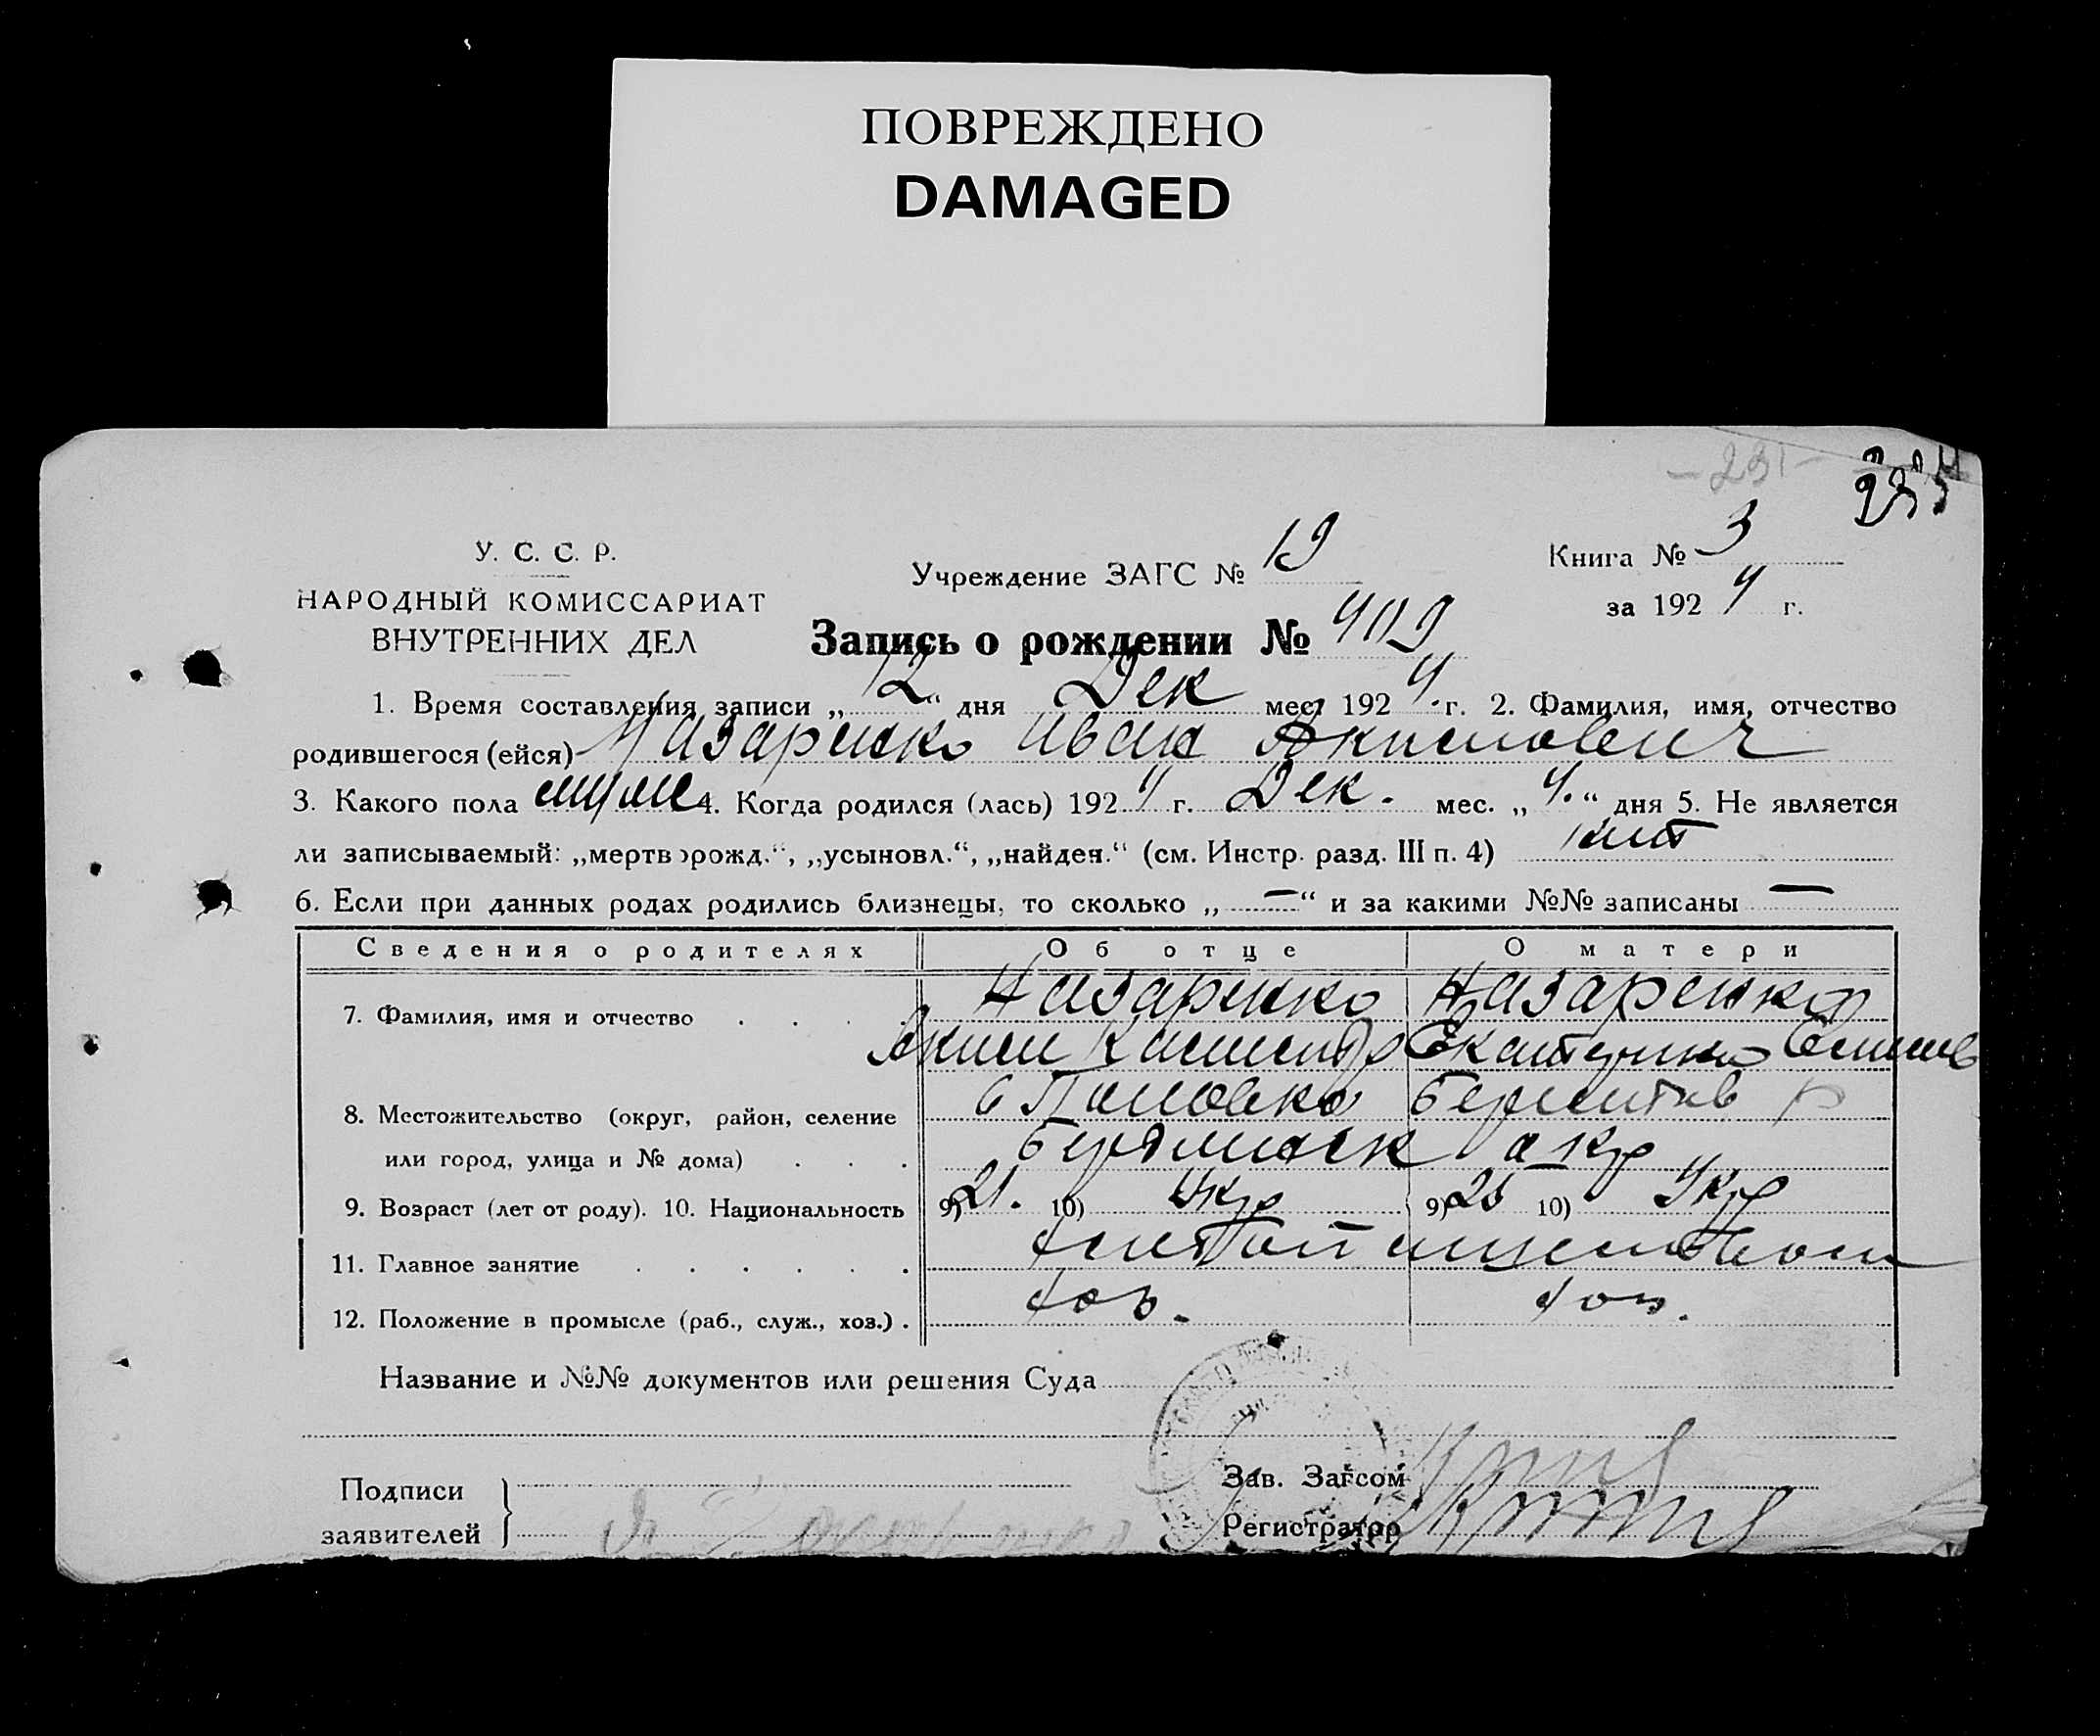 ПОВРЕЖДЕНО
DAMAGED
- 231 -
У. С. С. Р.
НАРОДНЫЙ КОМИССАРИАТ
ВНУТРЕННИХ ДЕЛ
Учреждение ЗАГС № 19
Книга № 3
за 1924 г.
Запись о рождении № 409
1. Время составления записи „12“ дня Дек мес. 1924 г. 2. Фамилия, имя, отчество
родившегося (ейся) Назаренко Иван Акимович
3. Какого пола муж 4. Когда родился (лась) 1924 г. Дек. мес. „4.“ дня 5. Не является
ли записываемый: „мертворожд.“, „усыновл.“, „найден.“ (см. Инстр. разд. III п. 4) нет
6. Если при данных родах родились близнецы, то сколько „—“ и за какими №№ записаны —
Сведения о родителях Об отце О матери
7. Фамилия, имя и отчество Назаренко Назаренко
Аким Екатерина
8. Местожительство (округ, район, селение с Поповка
или город, улица и № дома) Бердянск окр
9. Возраст (лет от роду). 10. Национальность 9) 21. 10) Укр 9) 25 10) Укр
11. Главное занятие
12. Положение в промысле (раб., служ., хоз.) хоз. хоз.
Название и №№ документов или решения Суда
Подписи
заявителей
Зав. Загсом
Регистратор